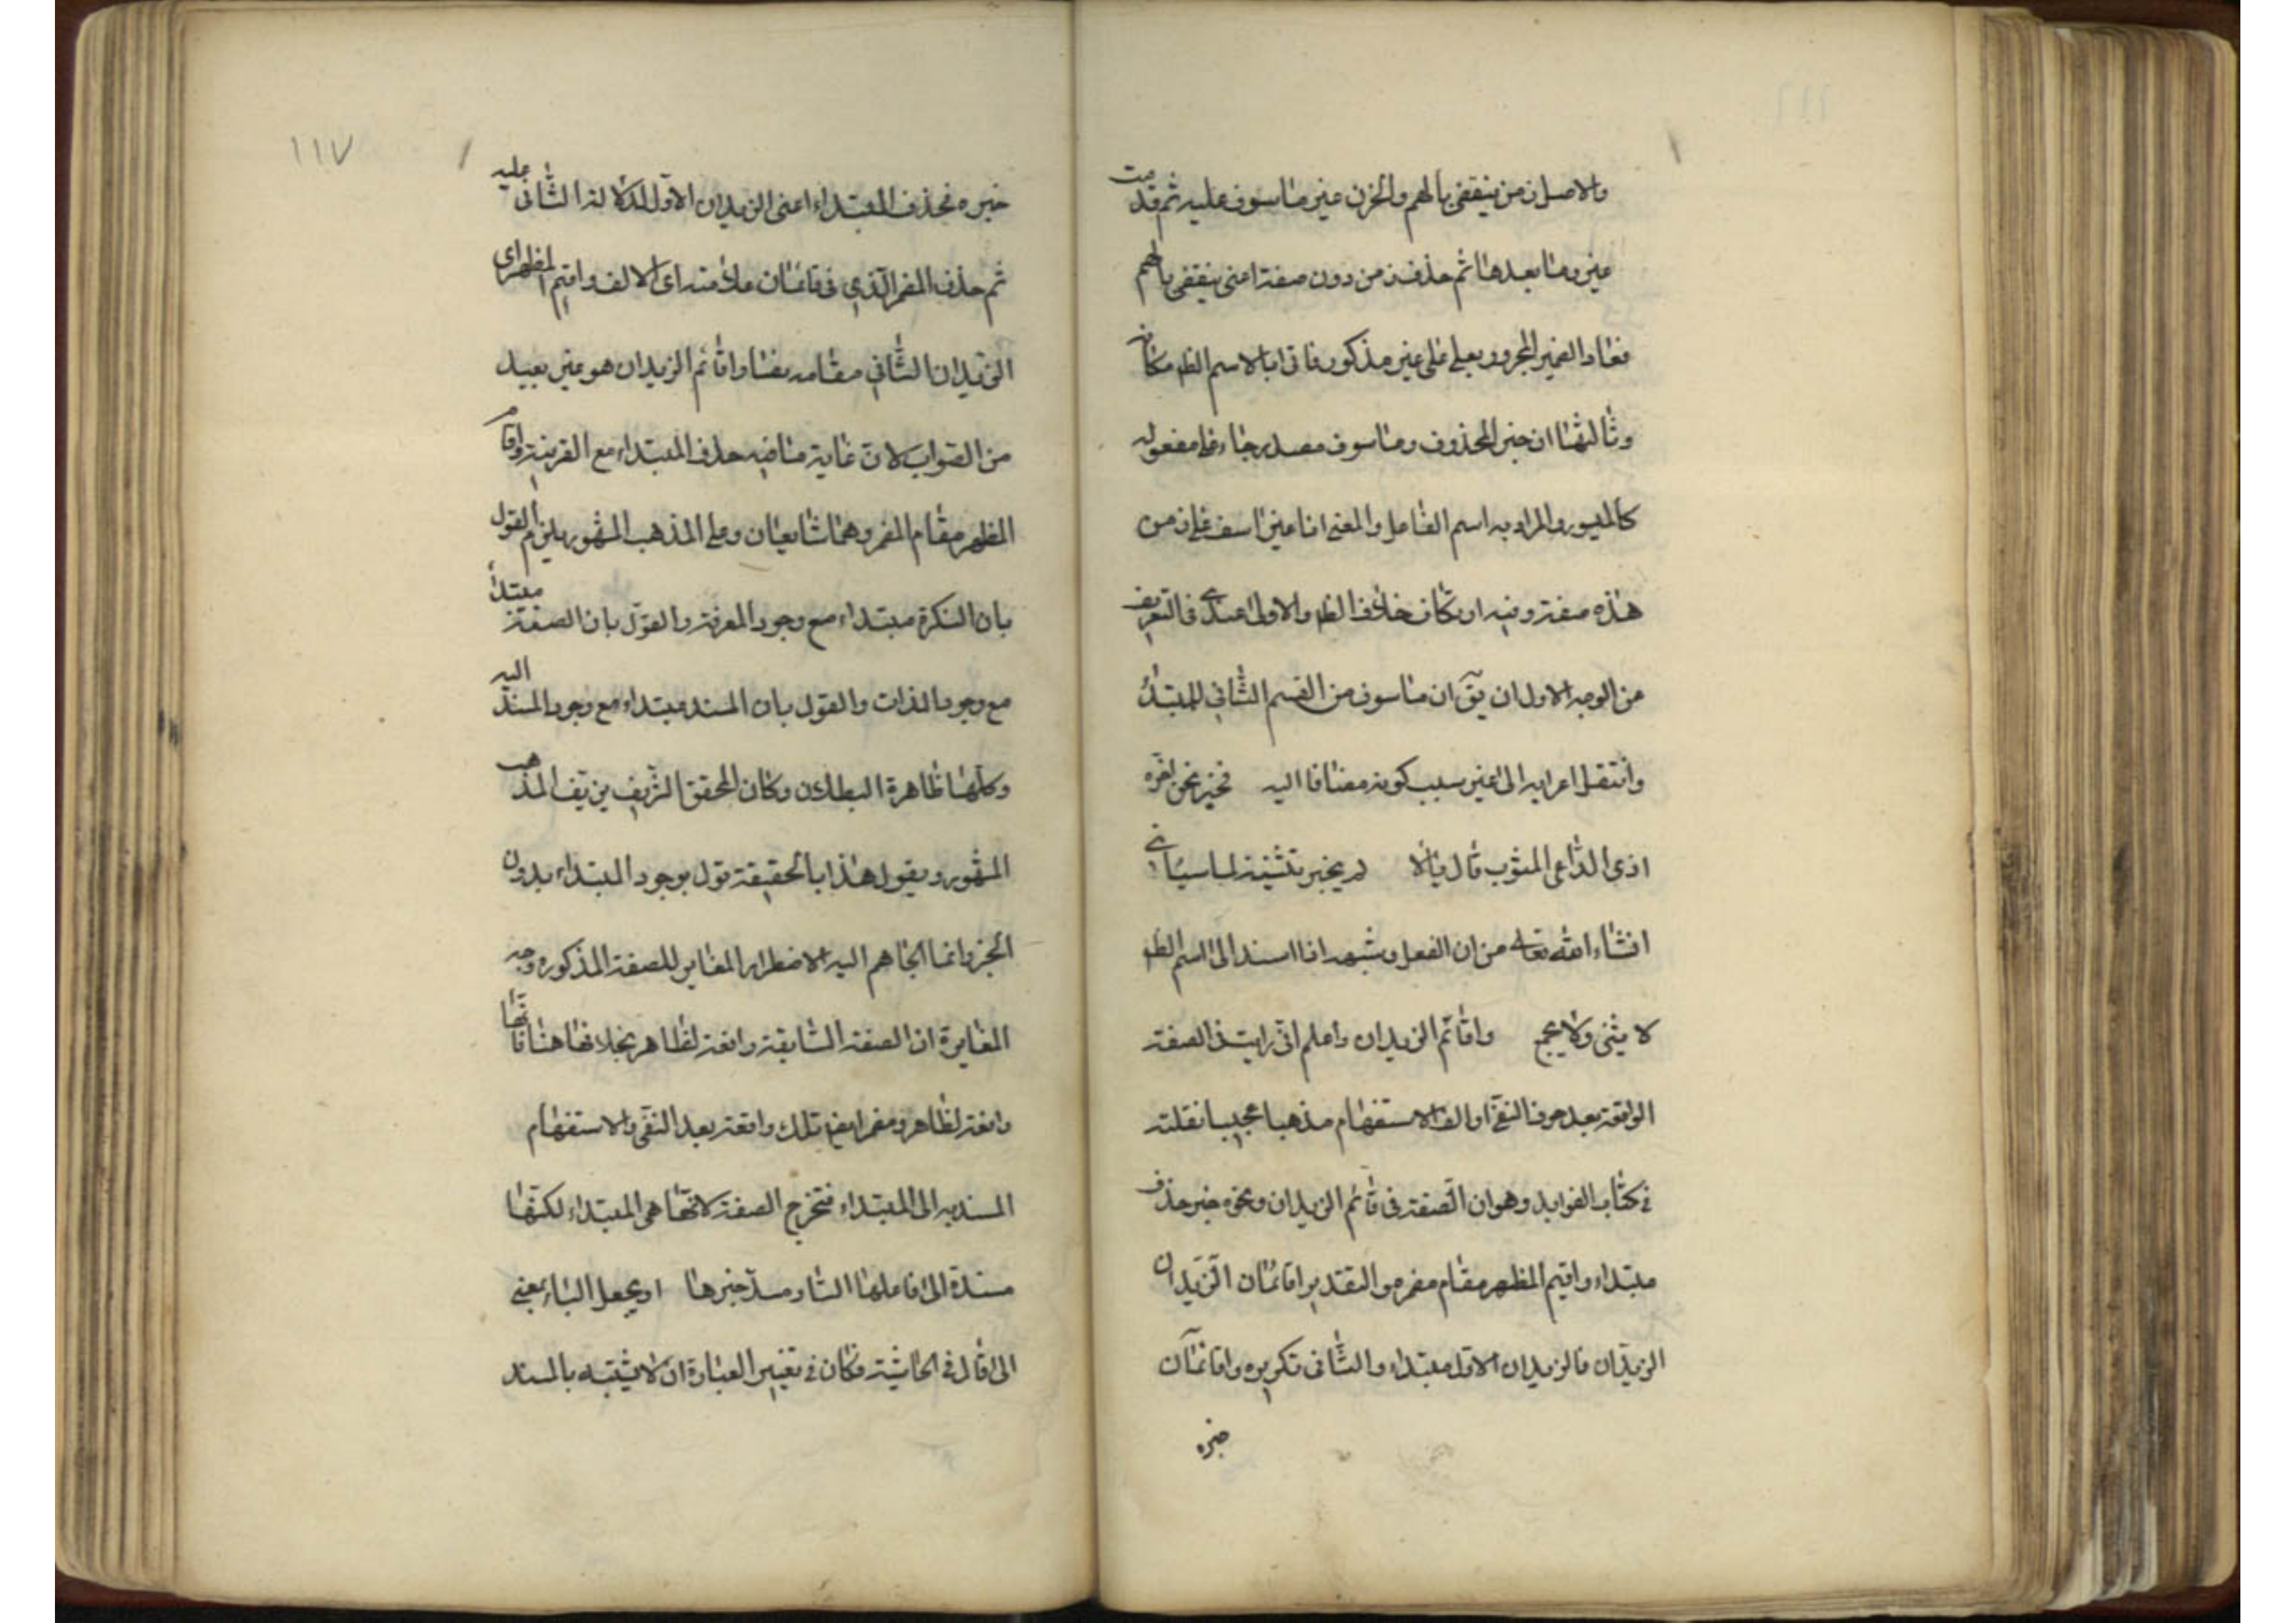 والاصل ان من ينقضي بالهم والحزن غير ماسوف عليه ثم قدمت
غير وما بعدها ثم حذف من دون صفة اعنى ينقضي بالهم
فعاد الضمير المجرور بعلى على غير مذكور فاتى بالاسم الظ مكانه
وثالثها ان خبر لمحذوف وماسوف مصدر جاء على مفعول
كالميسور والمراد به اسم الفاعل والمعنى انا غير اسف على زمن
هذه صفته وفيه ارتكاب خلاف الظ والاولى عندى فالتعريف
من الوجه الاول ان يق ان ماسوف من القسم الثانى للمبتدا
وانتقل اعرابه الى غير بسبب كونه مضافا اليه فخير نحن لقره
اذى الداعى المثوب قال يالا لم يخبر بتثنيته لما سياتى
انشاء الله تعالى من ان الفعل وشبهه اذا اسند الى اسم الظ
لا يثنى ولا يجمع واقائم الزيدان واعلم انى رايت فى الصفة
الواقعة بعد حرف النفى او الف الاستفهام مذهبا عجيبا نقلته
فى كتاب الفوايد وهو ان الصفة فى قائم الزيدان ونحوه خبر حذف
مبتداء واقيم المظهر مقام مضمره والتقدير اقائمان الزيدان
الزيدان فالزيدان الاول مبتداء والثانى تكريره واقائمان
خبره
١١٧
خبره فحذف المبتداء اعنى الزيدان الاول لدلالة الثانى عليه
ثم حذف المضمر الذى فى قائمان علامته اى الالف واقيم المظهر اى
الزيدان الثانى مقامه فصار اقائم الزيدان هو غير بعيد
من الصواب لان غاية ما فيه حذف المبتداء مع القرينة واقامة
المظهر مقام المضمر وهما شايعان وعلى المذهب المشهور يلزم القول
بان النكرة مبتداء مع وجود المعرفة والقول بان الصفة مبتدا
مع وجود الذات والقول بان المسند مبتداء مع وجود المسند اليه
وكلها ظاهرة البطلان وكان المحقق الشريف يزيف المذهب
المشهور ويقول هذا بالحقيقة قول بوجود المبتداء بدون
الخبر وانما الجاهم اليه الاضطرار المغاير للصفة المذكوره وجه
المغايرة ان الصفة السابقة رافعة لظاهر بخلافها هنا فانها
رافعة لظاهر ومضمر ايض تلك واقعة بعد النفى والاستفهام
المسند به الى المبتداء فتخرج الصفة لانها هى المبتداء لكنها
مسندة الى فاعلها الساد مسد خبرها او يجعل الباء بمعنى
الى قال فى الحاشية وكان فى تغيير العبارة ان لا يشتبه بالمسند